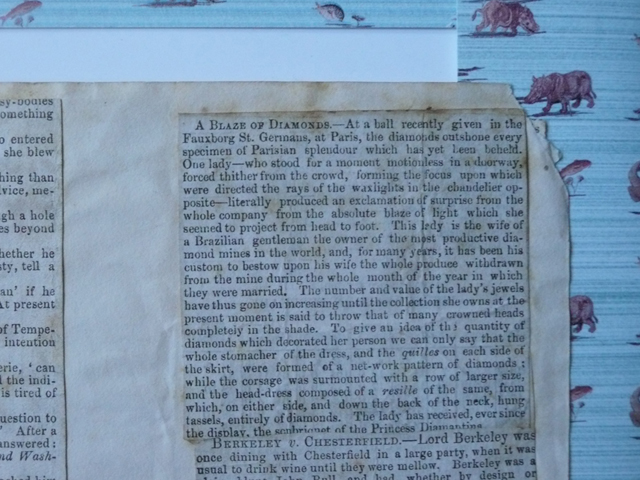 sy-bodies
omething
o entered
she blew
hing than
lvice, me-
gh a hole
es beyond
hether he
sty, tell a
an' if he
At present
of Tempe-
intention
erie, 'can
d the indi-
is tired of
uestion to
' After a
answered:
nd Wash-
A BLAZE OF DIAMONDS.—At a ball recently given in the
Fauxborg St. Germans, at Paris, the diamonds outshone every
specimen of Parisian splendour which has yet been beheld.
One lady—who stood for a moment motionless in a doorway,
forced thither from the crowd, forming the focus upon which
were directed the rays of the waxlights in the chandelier op-
posite—literally produced an exclamation of surprise from the
whole company from the absolute blaze of light which she
seemed to project from head to foot. This lady is the wife of
a Brazilian gentleman the owner of the most productive dia-
mond mines in the world, and, for many years, it has been his
custom to bestow upon his wife the whole produce withdrawn
from the mine during the whole month of the year in which
they were married. The number and value of the lady's jewels
have thus gone on increasing until the collection she owns at the
present moment is said to throw that of many crowned heads
completely in the shade. To give an idea of the quantity of
diamonds which decorated her person we can only say that the
whole stomacher of the dress, and the quilles on each side of
the skirt, were formed of a net-work pattern of diamonds;
while the corsage was surmounted with a row of larger size,
and the head-dress composed of a resille of the same, from
which, on either side, and down the back of the neck, hung
tassels, entirely of diamonds. The lady has received, ever since
the display, the soubriquet of the Princess Diamantine.
BERKELEY v. CHESTERFIELD.—Lord Berkeley was
once dining with Chesterfield in a large party, when it was
usual to drink wine until they were mellow. Berkeley was a
John Bull, and had, whether by design or